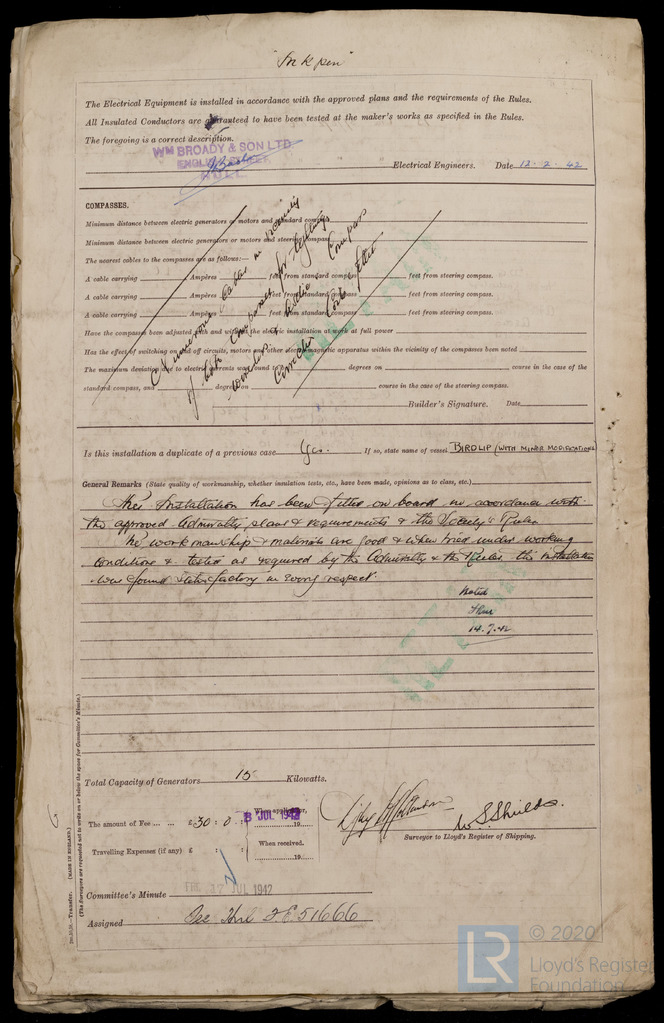 "Inkpen"
The Electrical Equipment is installed in accordance with the approved plans and the requirements of the Rules.
All Insulated Conductors are guaranteed to have been tested at the maker's works as specified in the Rules.
The foregoing is a correct description.
WM BROADY & SON LTD.
ENGLISH STREET,
HULL.
Electrical Engineers. Date 12.2.42
COMPASSES.
Minimum distance between electric generators or motors and standard compass
Minimum distance between electric generators or motors and steering compass
The nearest cables to the compasses are as follows:—
A cable carrying Ampères feet from standard compass feet from steering compass.
A cable carrying Ampères feet from standard compass feet from steering compass.
A cable carrying Ampères feet from standard compass feet from steering compass.
Have the compasses been adjusted with and without the electric installation at work at full power
Has the effect of switching on and off circuits, motors and other electro-magnetic apparatus within the vicinity of the compasses been noted
The maximum deviation due to electric currents was found to be degrees on course in the case of the
standard compass, and degrees on course in the case of the steering compass.
Numerous cables in vicinity
of both compasses for lighting
Compass
Corrector Coils fitted
Builder's Signature. Date
Is this installation a duplicate of a previous case Yes. If so, state name of vessel BIRDLIP (WITH MINOR MODIFICATIONS)
General Remarks (State quality of workmanship, whether insulation tests, etc., have been made, opinions as to class, etc.)
This Installation has been fitted on board in accordance with
the approved Admiralty plans & requirements & the Society's Rules.
The workmanship & materials are good & when tried under working
conditions & tested as required by the Admiralty & the Rules the installation
was found satisfactory in every respect.
Noted
14.7.42
Total Capacity of Generators 15 Kilowatts.
The amount of Fee ... ... £ 30 : 0 : When applied for,
8 JUL 1942 19
Travelling Expenses (if any) £ : : When received,
19
W S Shields.
Surveyor to Lloyd's Register of Shipping.
Committee's Minute FRI. 17 JUL 1942
Assigned See Hul F.E. 51666
2m,10,38.—Transfer. (MADE IN ENGLAND.)
(The Surveyors are requested not to write on or below the space for Committee's Minute.)
LR © 2020
Lloyd's Register
Foundation